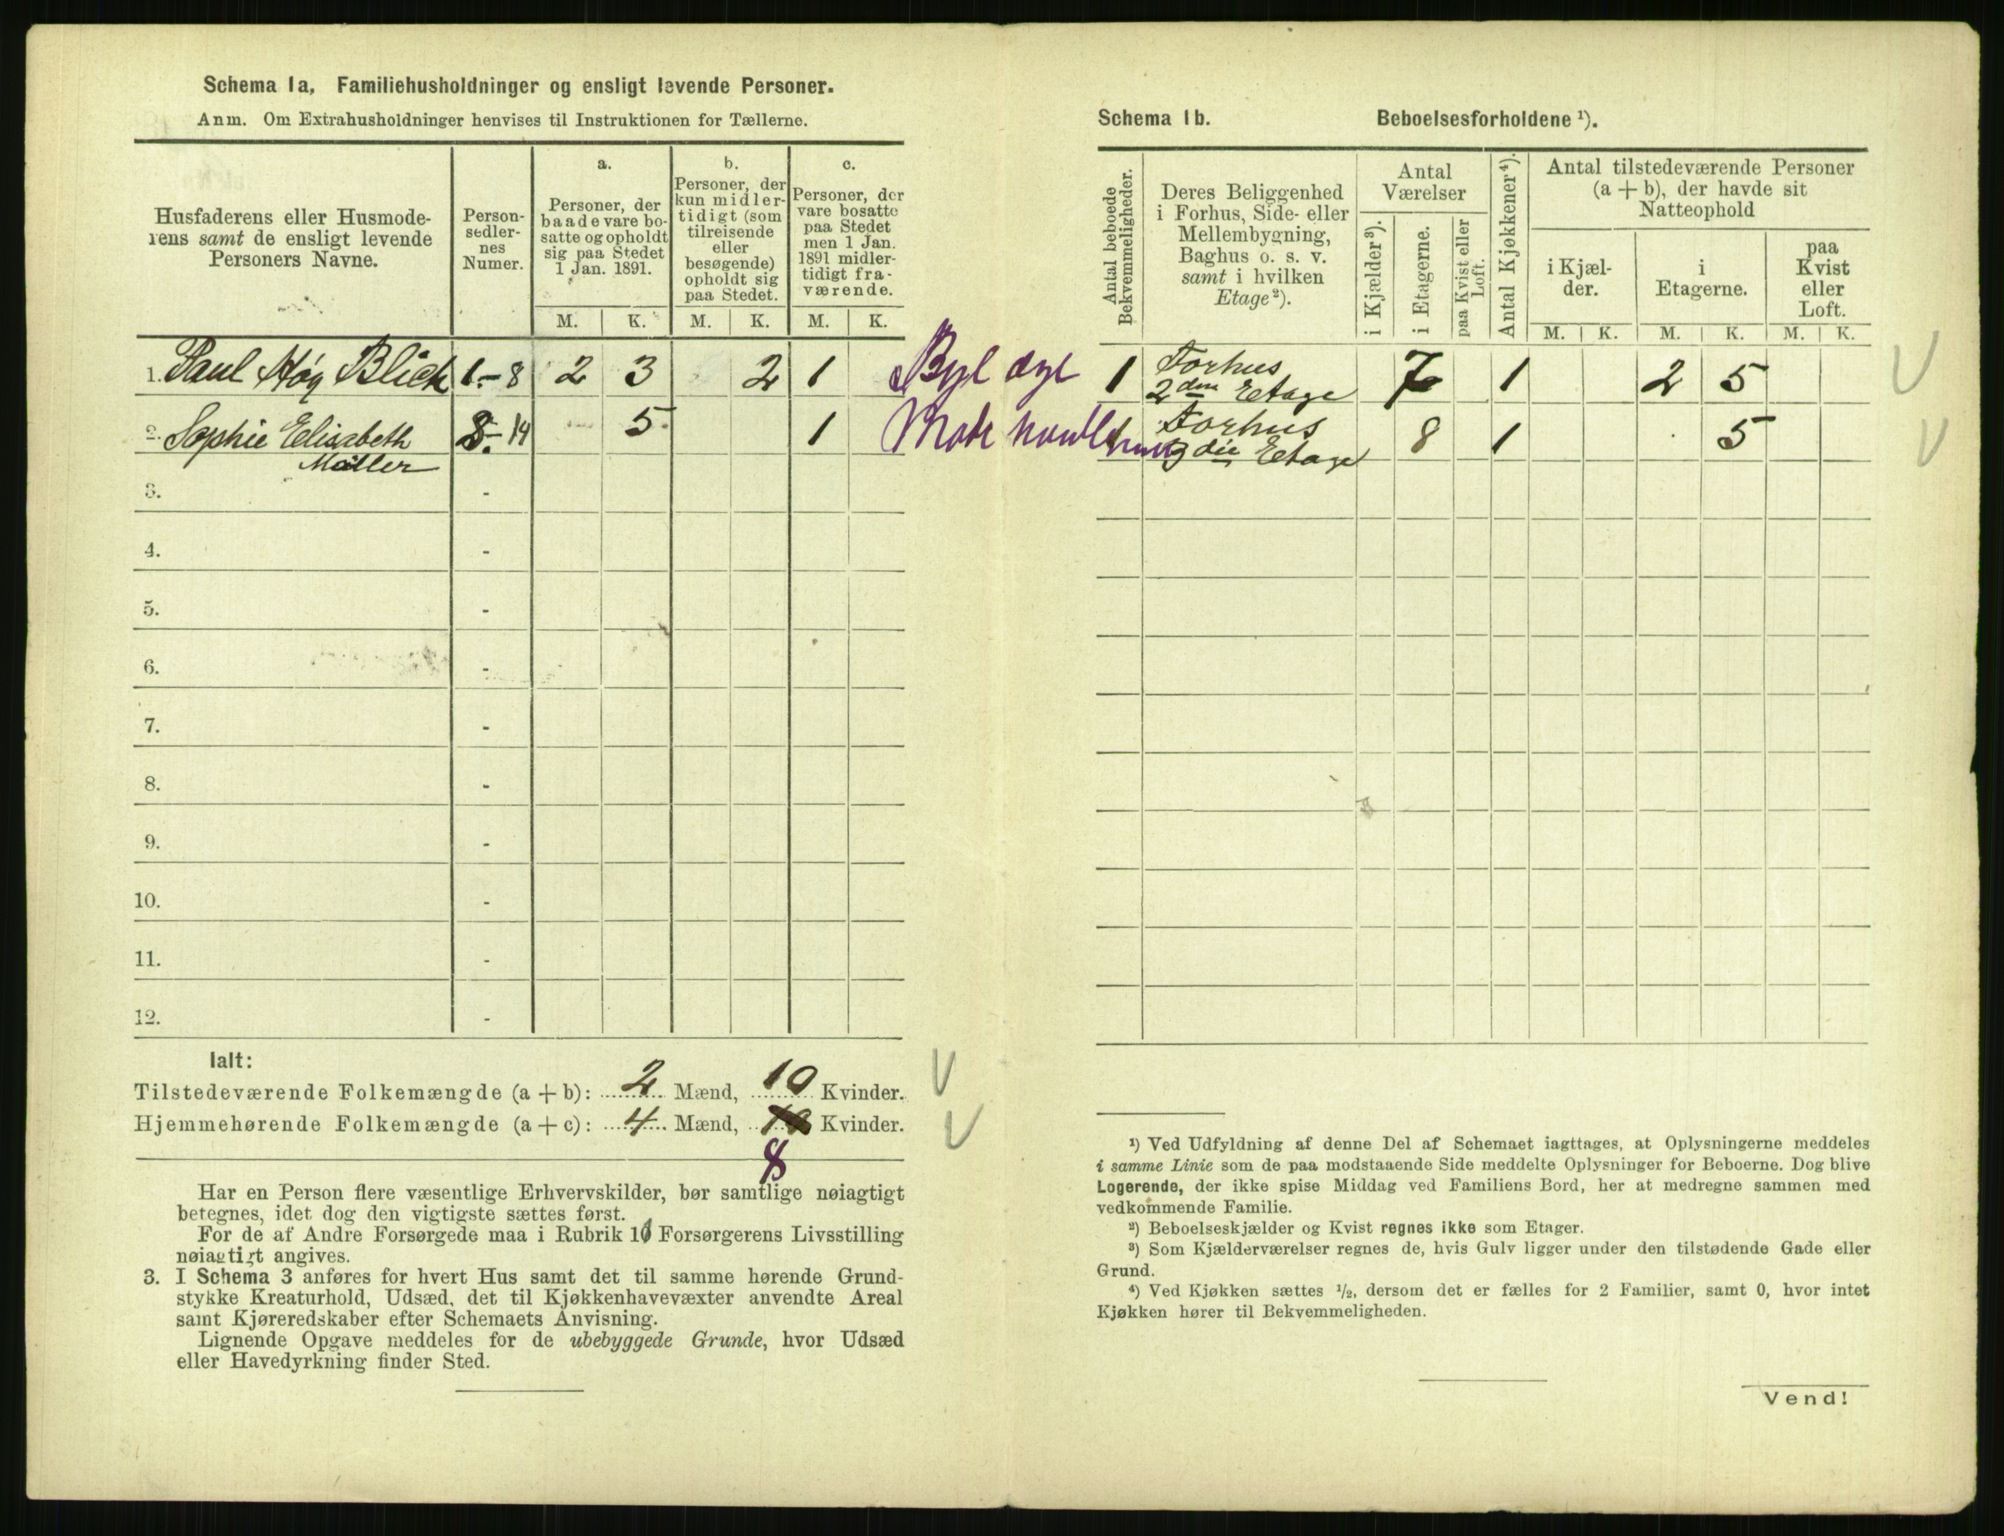 Schema 1a. Familiehusholdninger og ensligt levende Personer.
Anm. Om Extrahusholdninger henvises til Instruktionen for Tællerne.
Husfaderens eller Husmode-
rens samt de ensligt levende
Personers Navne.
Person-
sedler-
nes
Numer.
a.
Personer, der
baade vare bo-
satte og opholdt
sig paa Stedet
1 Jan. 1891.
b.
Personer, der
kun midler-
tidigt (som
tilreisende
eller
besøgende)
opholdt sig
paa Stedet.
c.
Personer, der
vare bosatte
paa Stedet
men 1 Jan.
1891 midler-
tidigt fra-
værende.
M. K. M. K. M. K.
1. Paul Høg Blich 1.-8 2 3 2 1
2. Sophie Elisabeth 8.-14 5 1
Møller
3. -
4. -
5. -
6. -
7. -
8. -
9. -
10. -
11. -
12. -
Ialt:
Tilstedeværende Folkemængde (a + b): 2 Mænd, 10 Kvinder.
Hjemmehørende Folkemængde (a + c): 4 Mænd, 10 Kvinder.
8
Har en Person flere væsentlige Erhvervskilder, bør samtlige nøiagtigt
betegnes, idet dog den vigtigste sættes først.
For de af Andre Forsørgede maa i Rubrik 10 Forsørgerens Livsstilling
nøiagtigt angives.
3. I Schema 3 anføres for hvert Hus samt det til samme hørende Grund-
stykke Kreaturhold, Udsæd, det til Kjøkkenhavevæxter anvendte Areal
samt Kjøreredskaber efter Schemaets Anvisning.
Lignende Opgave meddeles for de ubebyggede Grunde, hvor Udsæd
eller Havedyrkning finder Sted.
Schema 1b. Beboelsesforholdene ¹).
Antal beboede
Bekvemmeligheder.
Deres Beliggenhed
i Forhus, Side- eller
Mellembygning,
Baghus o. s. v.
samt i hvilken
Etage²).
Antal
Værelser
i Kjælder³).
i Etagerne.
paa Kvist eller
Loft.
Antal Kjøkkener⁴).
Antal tilstedeværende Personer
(a + b), der havde sit
Natteophold
i Kjæl-
der.
i
Etagerne.
paa
Kvist
eller
Loft.
M. K. M. K. M. K.
1 Forhus 7 1 2 5
2den Etage
Forhus 8 1 5
3die Etage
¹) Ved Udfyldning af denne Del af Schemaet iagttages, at Oplysningerne meddeles
i samme Linie som de paa modstaaende Side meddelte Oplysninger for Beboerne. Dog blive
Logerende, der ikke spise Middag ved Familiens Bord, her at medregne sammen med
vedkommende Familie.
²) Beboelseskjælder og Kvist regnes ikke som Etager.
³) Som Kjælderværelser regnes de, hvis Gulv ligger under den tilstødende Gade eller
Grund.
⁴) Ved Kjøkken sættes ½, dersom det er fælles for 2 Familier, samt 0, hvor intet
Kjøkken hører til Bekvemmeligheden.
Vend!